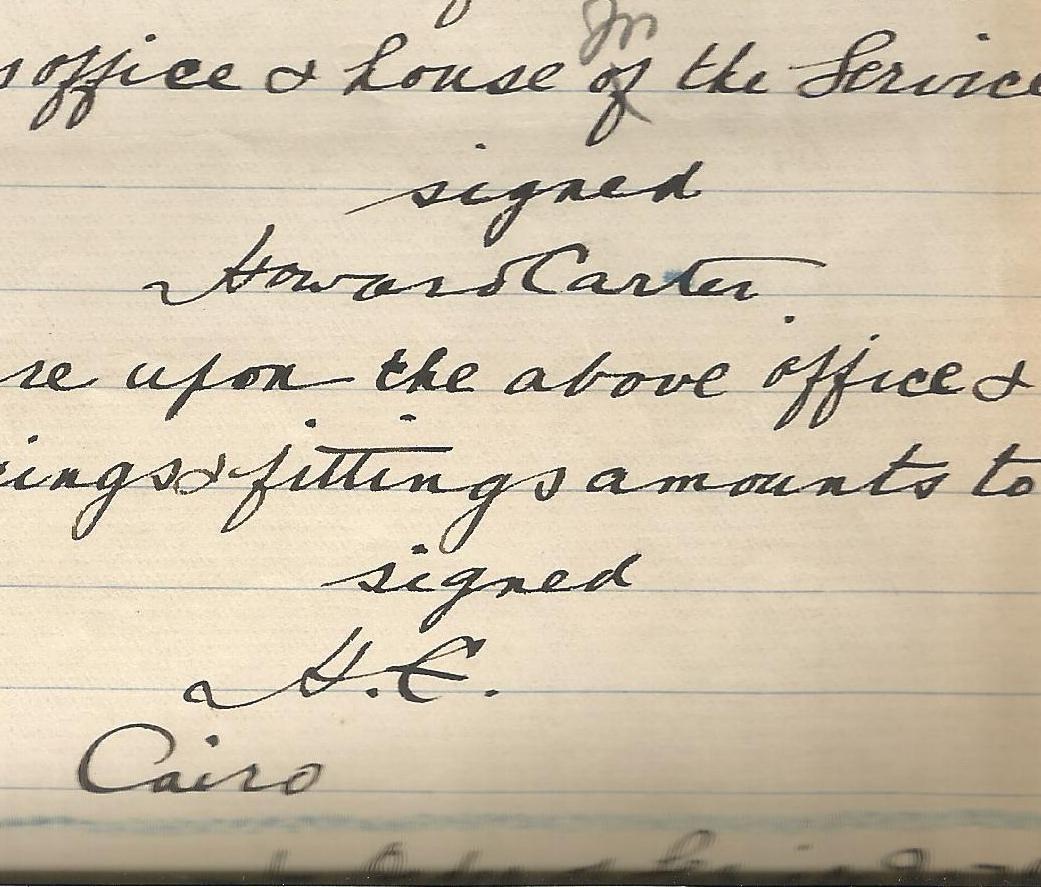 In
s office & house of the Service
signed
Howard Carter
re upon the above office &
ings & fittings amounts to
signed
H.C.
Cairo